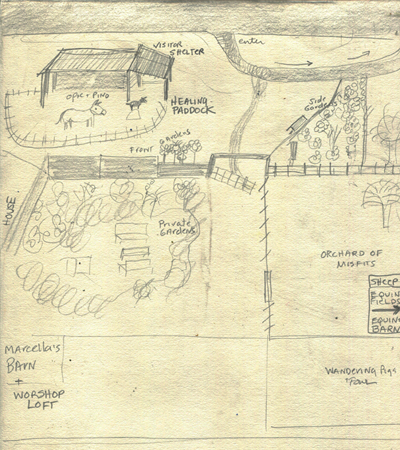 VISITOR
SHELTER
enter
OPIE + PINO
HEALING
PADDOCK
Side
Gardens
GARDENS
FRONT
HOUSE
Private
GARDENS
ORCHARD OF
MISFITS
SHEEP
EQUIN
FIELDS
EQUIN
BARN
MARCELLA'S
BARN
+
WORSHOP
LOFT
WANDERING Pigs
+ Fowl